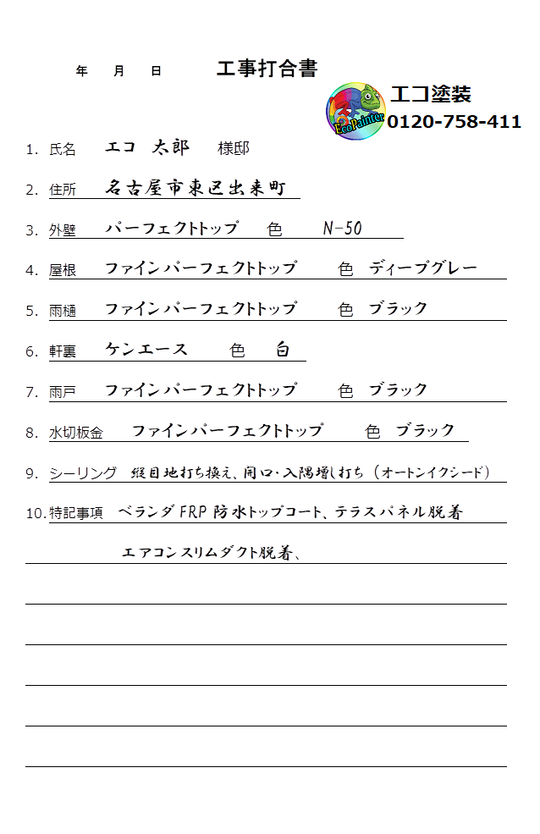 年 月 日 工事打合書
エコ塗装
EcoPainter
0120-758-411
1. 氏名 エコ 太郎 様邸
2. 住所 名古屋市東区出来町
3. 外壁 パーフェクトトップ 色 N-50
4. 屋根 ファインパーフェクトトップ 色 ディープグレー
5. 雨樋 ファインパーフェクトトップ 色 ブラック
6. 軒裏 ケンエース 色 白
7. 雨戸 ファインパーフェクトトップ 色 ブラック
8. 水切板金 ファインパーフェクトトップ 色 ブラック
9. シーリング 縦目地打ち換え、開口・入隅増し打ち（オートンイクシード）
10. 特記事項 ベランダFRP防水トップコート、テラスパネル脱着
エアコンスリムダクト脱着、